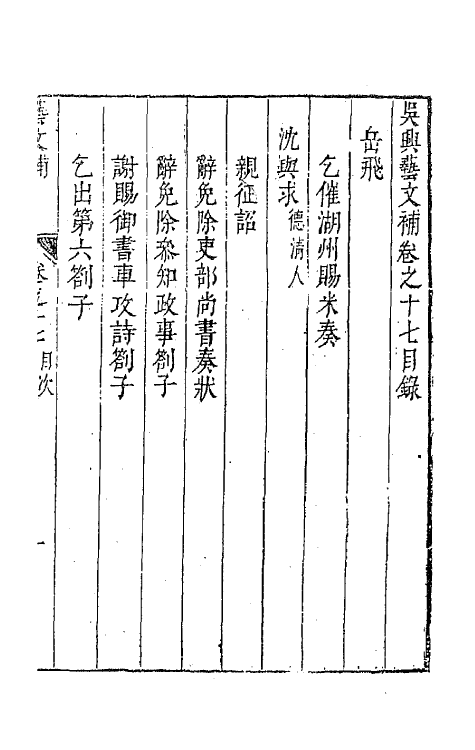 吳興藝文補卷之十七目錄
岳飛
乞催湖州賜米奏
沈與求德清人
親征詔
辭免除吏部尚書奏狀
辭免除參知政事劄子
謝賜御書車攻詩劄子
乞出第六劄子
藝文補
卷之十七 目次
一